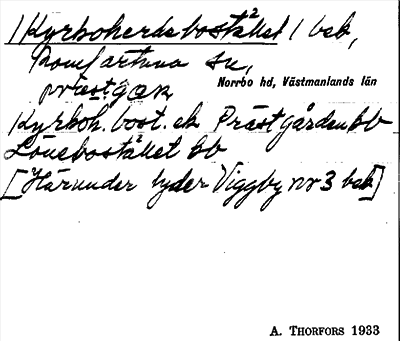 /Kyrkoherdebostället/ bsk,
Romfartuna sn,
prästgan
Norrbo hd, Västmanlands län
Kyrkoh. bost. ek Prästgården bb
Lönebostället bb
[Härunder lyder Viggby nr 3 bsk]
A. THORFORS 1933